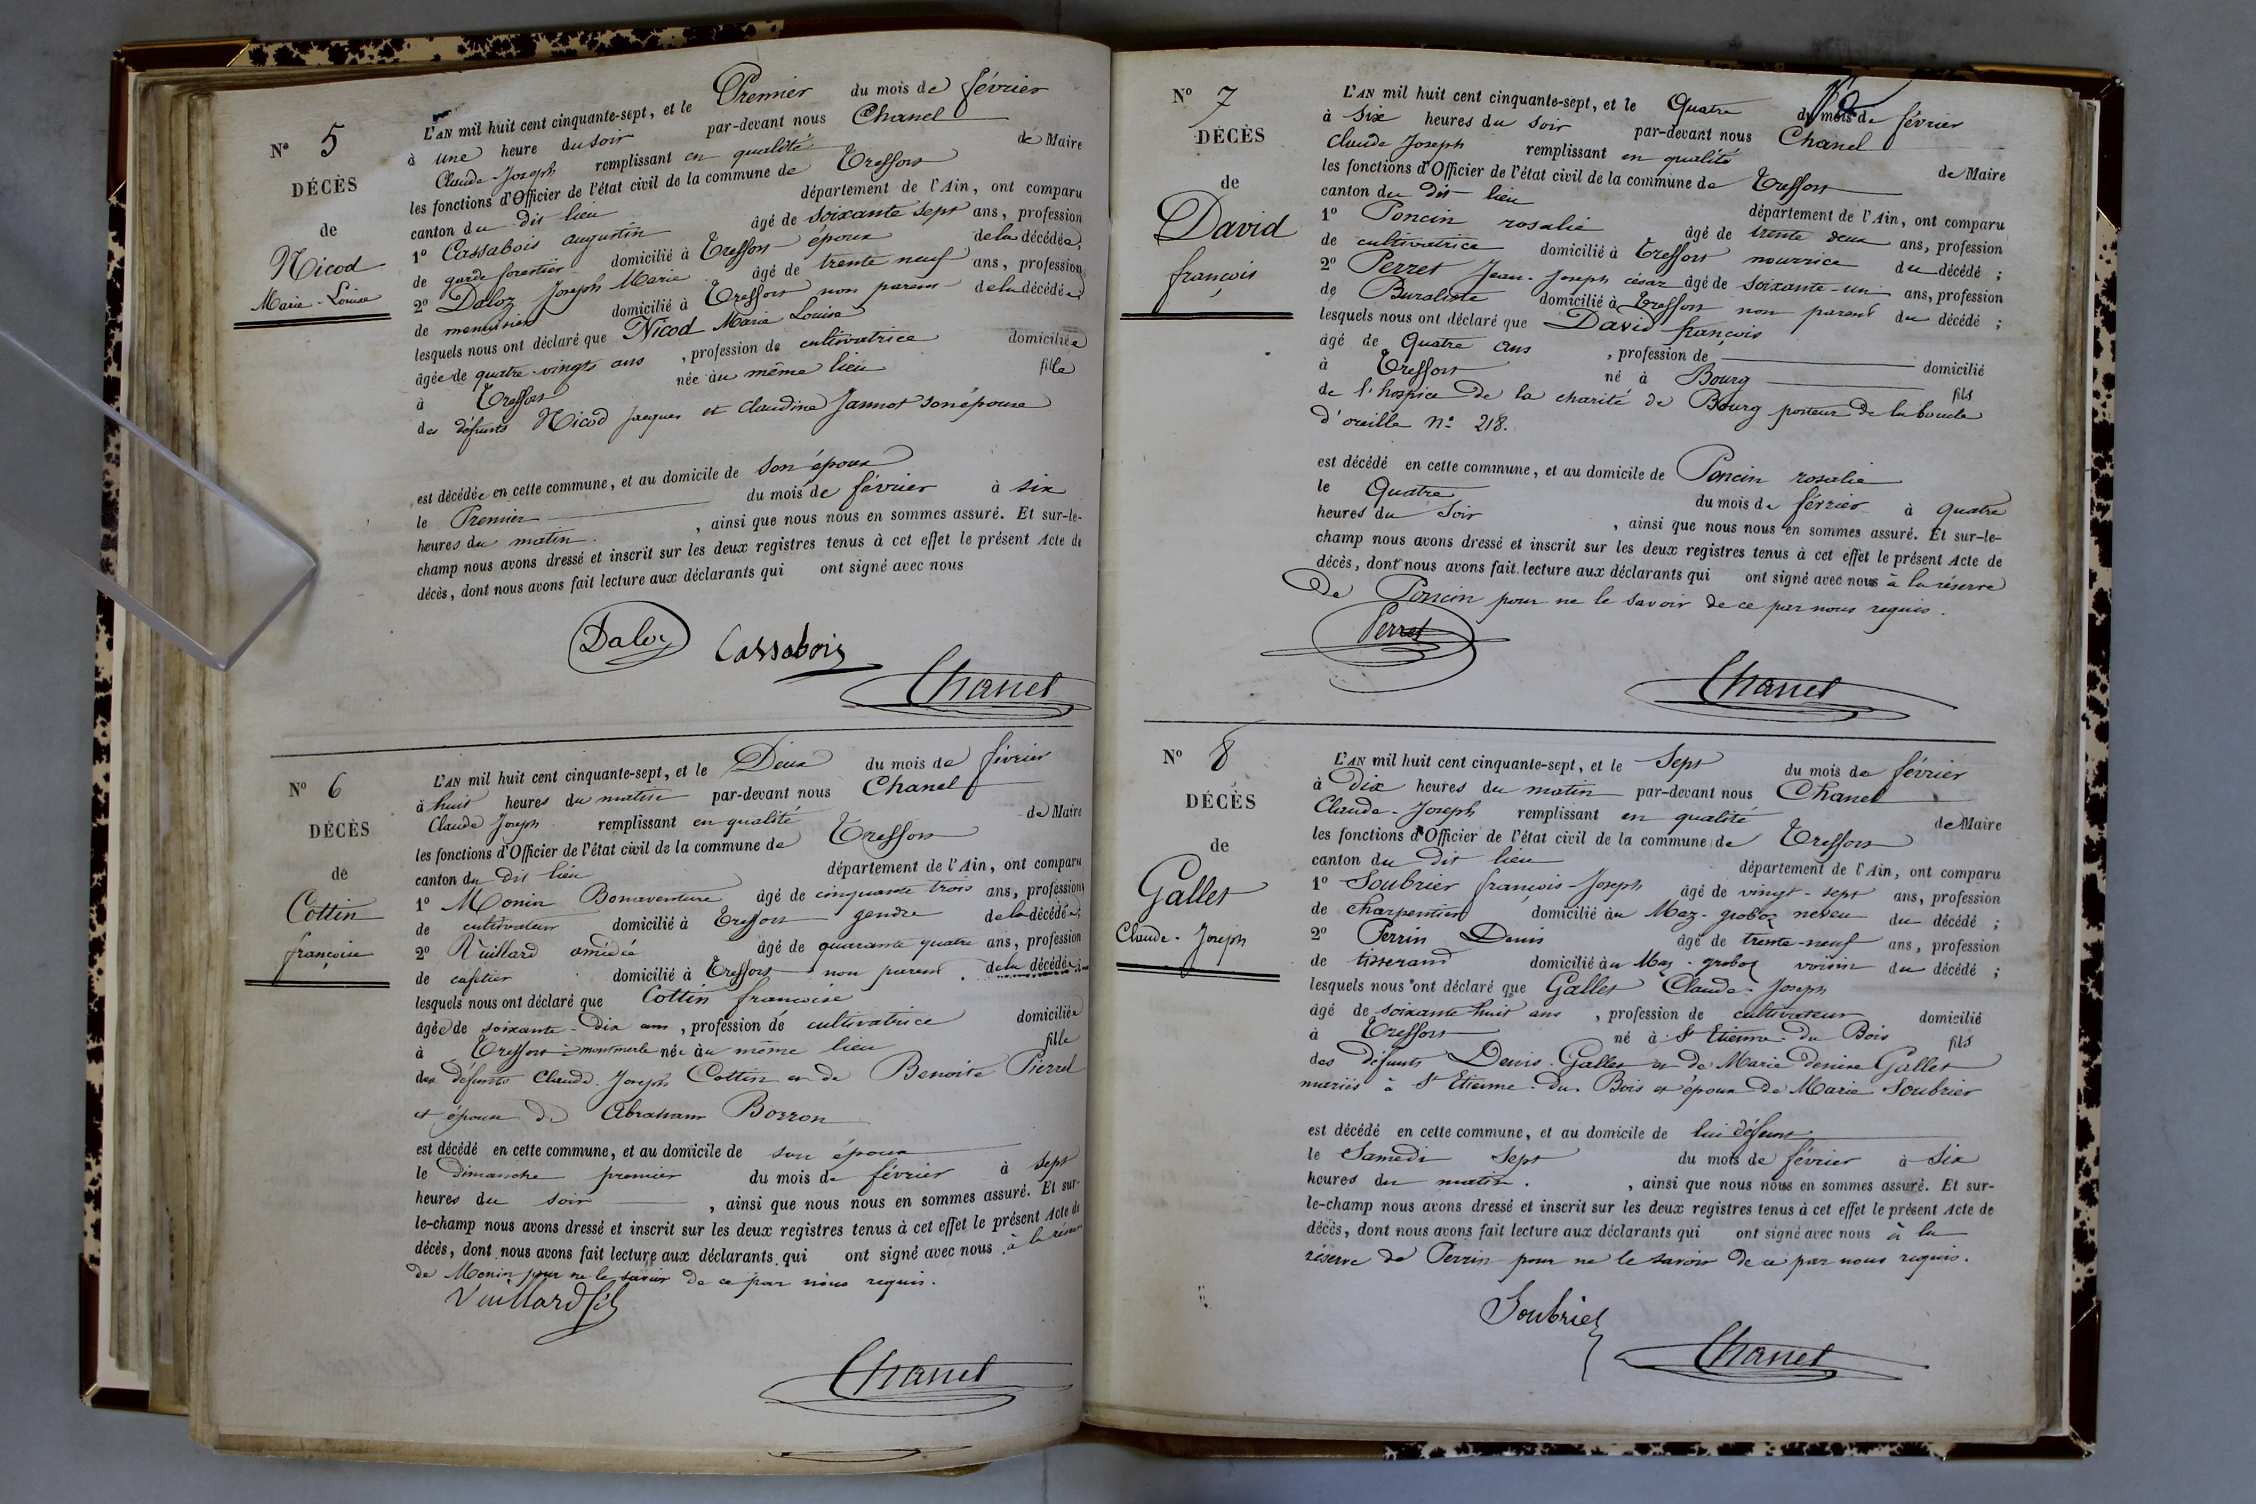 N° 5
DÉCÈS
de
Nicod
Marie-Louise
L'AN mil huit cent cinquante-sept, et le Premier du mois de février
à une heure du soir par-devant nous Chanel
Claude-Joseph remplissant en qualité de Maire
les fonctions d'Officier de l'état civil de la commune de Treffort
canton du dit lieu département de l'Ain, ont comparu
1° Cassabois augustin âgé de soixante sept ans, profession
de garde forestier domicilié à Treffort époux de la décédée;
2° Daloz Joseph Marie âgé de trente neuf ans, profession
de menuisier domicilié à Treffort non parent de la décédée;
lesquels nous ont déclaré que Nicod Marie Louise
âgée de quatre-vingts ans, profession de cultivatrice domiciliée
à Treffort née au même lieu fille
des défunts Nicod Jacques et Claudine Jannot son épouse
est décédée en cette commune, et au domicile de son époux
le Premier du mois de février à six
heures du matin, ainsi que nous nous en sommes assuré. Et sur-le-
champ nous avons dressé et inscrit sur les deux registres tenus à cet effet le présent Acte de
décès, dont nous avons fait lecture aux déclarants qui ont signé avec nous
Daloz Cassabois
Chanel
N° 6
DÉCÈS
de
Cottin
françoise
L'AN mil huit cent cinquante-sept, et le Deux du mois de février
à huit heures du matin par-devant nous Chanel
Claude Joseph remplissant en qualité de Maire
les fonctions d'Officier de l'état civil de la commune de Treffort
canton du dit lieu département de l'Ain, ont comparu
1° Monin Bonaventure âgé de cinquante trois ans, profession
de cultivateur domicilié à Treffort gendre de la décédée;
2° Vuillard amédée âgé de quarante quatre ans, profession
de cafetier domicilié à Treffort non parent. de la décédée;
lesquels nous ont déclaré que Cottin francoise
âgée de soixante-dix ans, profession de cultivatrice domiciliée
à Treffort montmerle née au même lieu fille
des défunts Claude-Joseph Cottin et de Benoite Pierrel
et épouse de Abraham Borron
est décédé en cette commune, et au domicile de son époux
le dimanche premier du mois de février à sept
heures du soir, ainsi que nous nous en sommes assuré. Et sur-
le-champ nous avons dressé et inscrit sur les deux registres tenus à cet effet le présent Acte de
décès, dont nous avons fait lecture aux déclarants qui ont signé avec nous à la réserve
de Monin pour ne le savoir de ce par nous requis.
Vuillard fils
Chanel
N° 7
DÉCÈS
de
David
françois
L'AN mil huit cent cinquante-sept, et le Quatre du mois de février
à six heures du soir par-devant nous Chanel
Claude Joseph remplissant en qualité de Maire
les fonctions d'Officier de l'état civil de la commune de Treffort
canton du dit lieu département de l'Ain, ont comparu
1° Poncin rosalie âgé de trente deux ans, profession
de cultivatrice domicilié à Treffort nourrice du décédé;
2° Perret Jean-Joseph césar âgé de soixante-un ans, profession
de Buraliste domicilié à Treffort non parent du décédé;
lesquels nous ont déclaré que David françois
âgé de Quatre ans, profession de domicilié
à Treffort né à Bourg fils
de l'hospice de la charité de Bourg porteur de la boucle
d'oreille N° 218.
est décédé en cette commune, et au domicile de Poncin rosalie
le Quatre du mois de février à quatre
heures du soir, ainsi que nous nous en sommes assuré. Et sur-le-
champ nous avons dressé et inscrit sur les deux registres tenus à cet effet le présent Acte de
décès, dont nous avons fait lecture aux déclarants qui ont signé avec nous à la réserve
De Poncin pour ne le savoir de ce par nous requis.
Perret
Chanel
N° 8
DÉCÈS
de
Gallet
Claude-Joseph
L'AN mil huit cent cinquante-sept, et le Sept du mois de février
à Dix heures du matin par-devant nous Chanel
Claude-Joseph remplissant en qualité de Maire
les fonctions d'Officier de l'état civil de la commune de Treffort
canton du dit lieu département de l'Ain, ont comparu
1° Soubrier françois-Joseph âgé de vingt-sept ans, profession
de charpentier domicilié au Maz-groboz neveu du décédé;
2° Perrin Denis âgé de trente-neuf ans, profession
de tisserand domicilié au Maz-groboz voisin du décédé;
lesquels nous ont déclaré que Gallet Claude-Joseph
âgé de soixante huit ans, profession de cultivateur domicilié
à Treffort né à St Etienne du Bois fils
des défunts Denis Gallet et de Marie Denise Gallet
mariés à St Etienne-du-Bois et époux de Marie Soubrier
est décédé en cette commune, et au domicile de lui défunt
le Samedi Sept du mois de février à Six
heures du matin., ainsi que nous nous en sommes assuré. Et sur-
le-champ nous avons dressé et inscrit sur les deux registres tenus à cet effet le présent Acte de
décès, dont nous avons fait lecture aux déclarants qui ont signé avec nous à la
réserve de Perrin pour ne le savoir de ce par nous requis.
Soubrier
Chanel